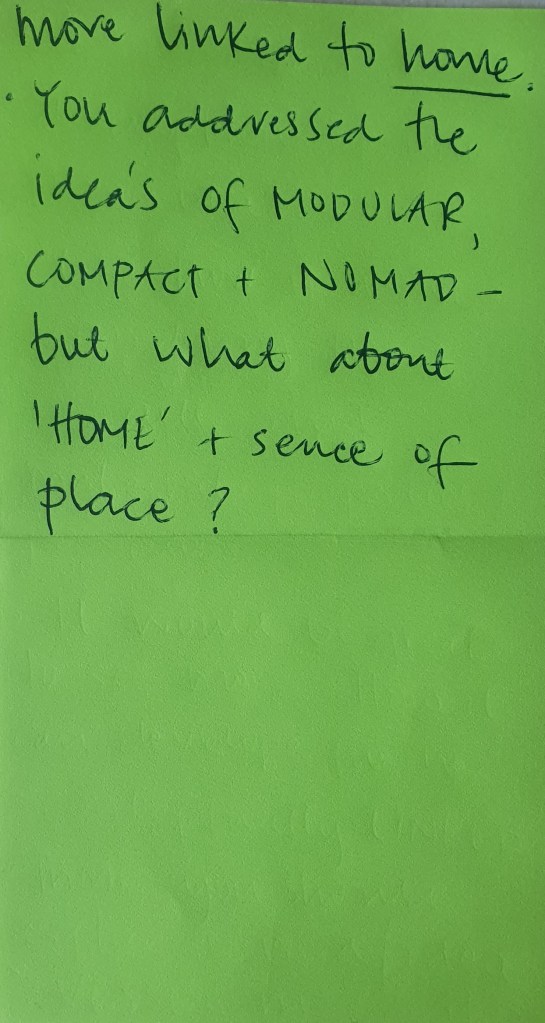 more linked to home.
· You addressed the
idea's of MODULAR,
COMPACT + NOMAD -
but what about
'HOME' + sence of
place ?